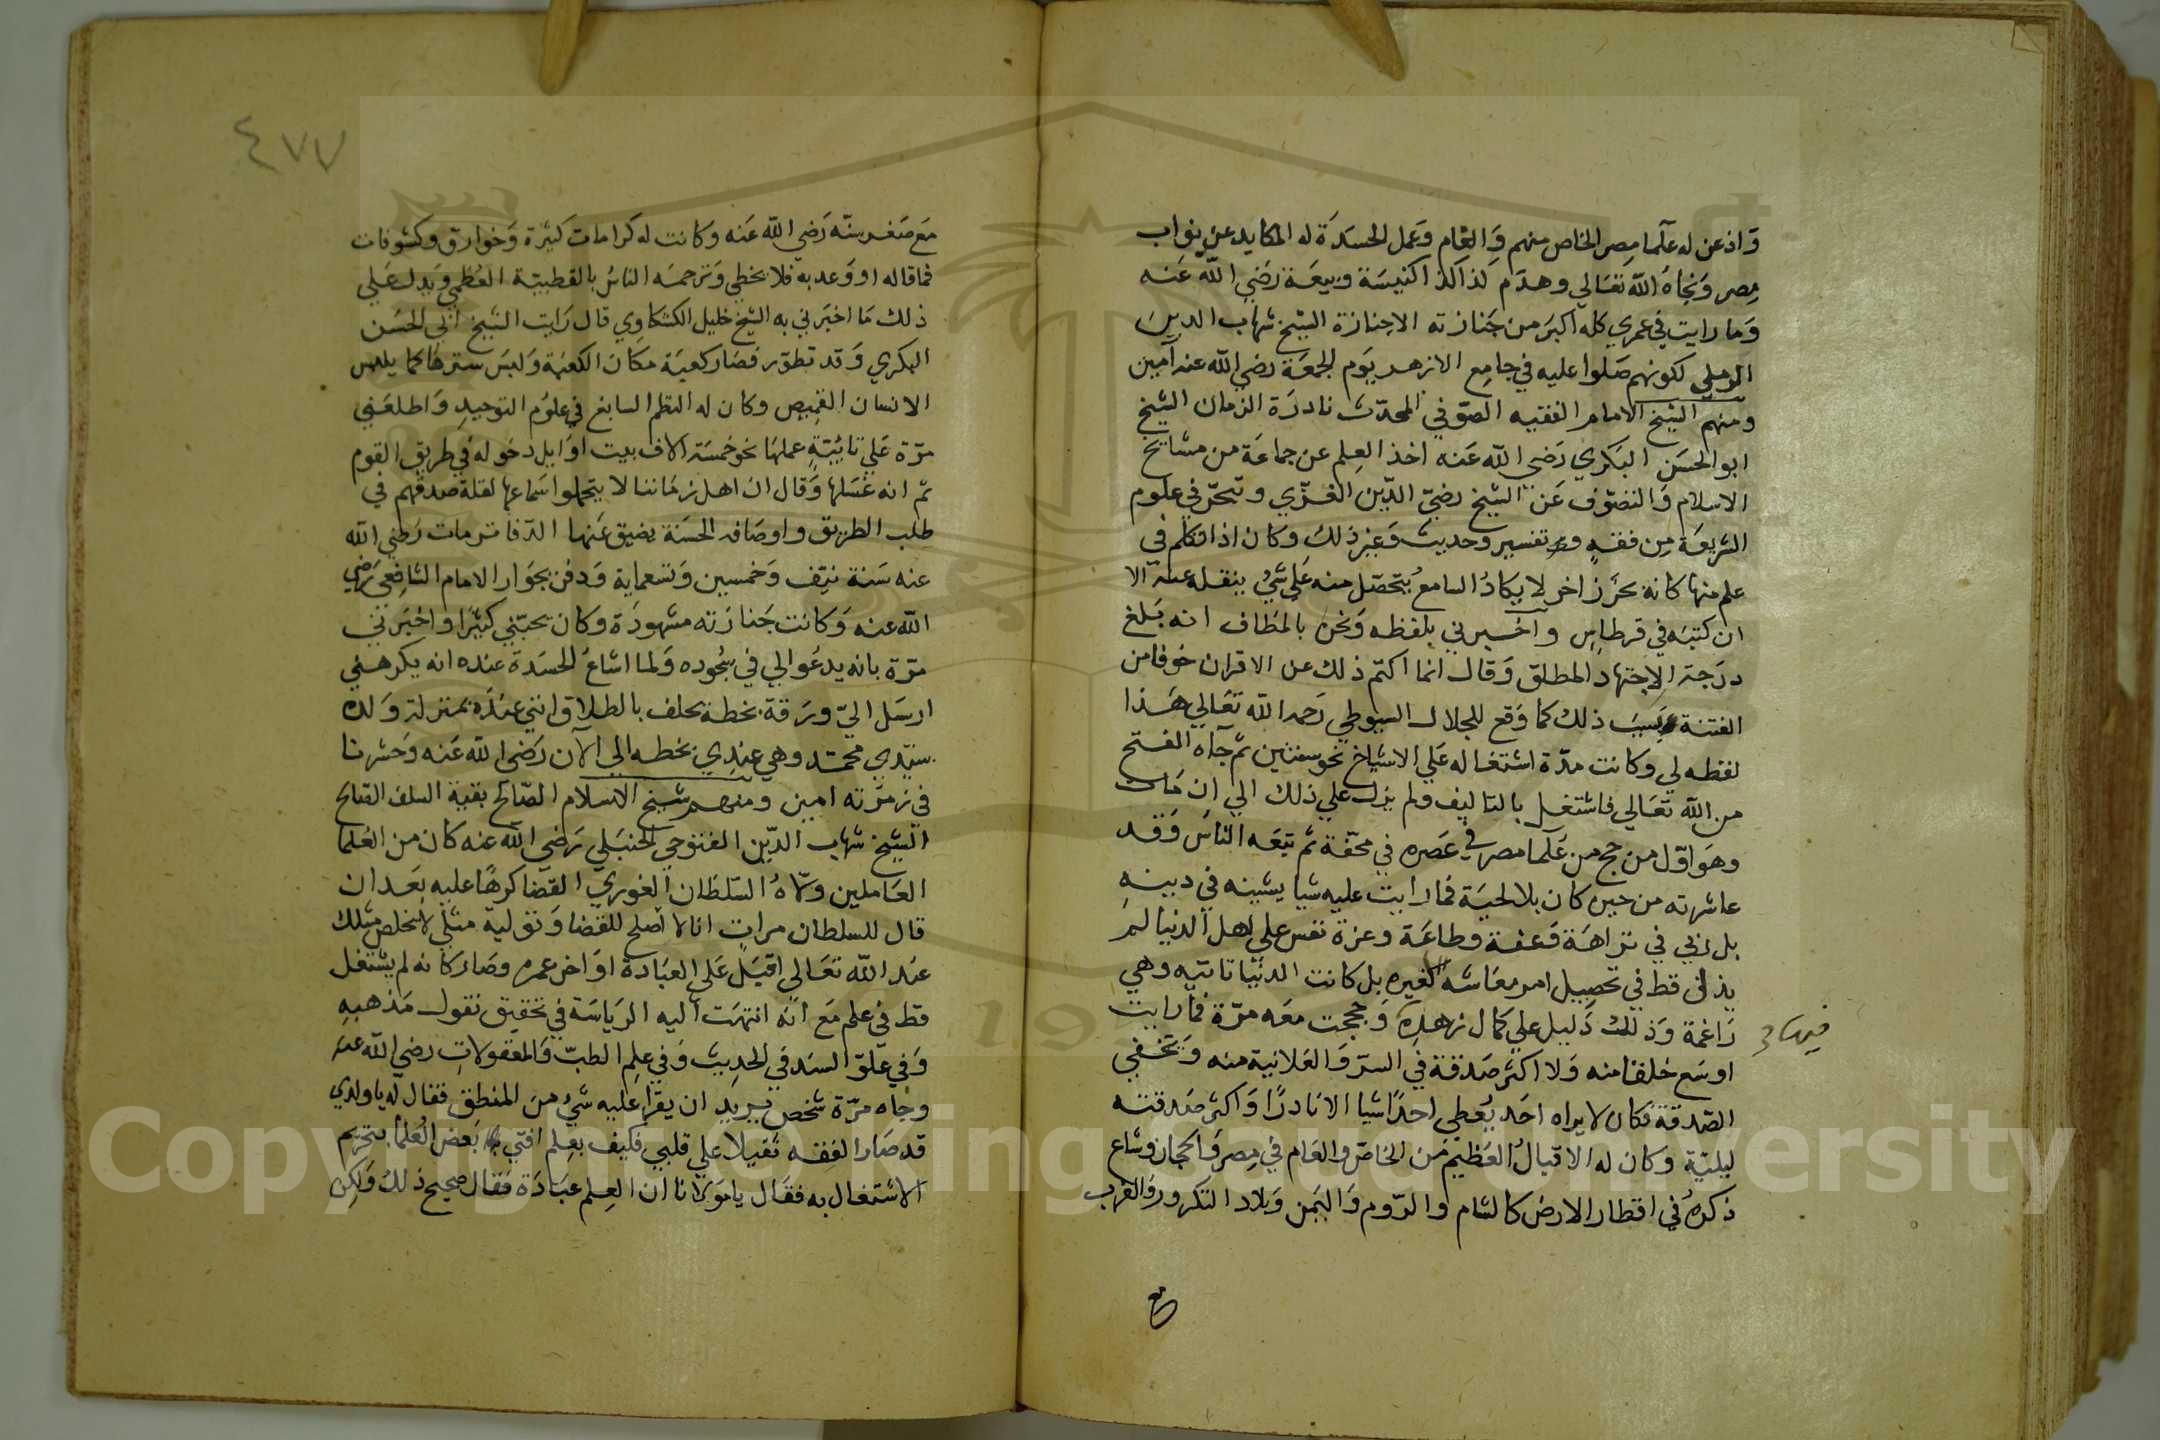 واذعن له علما مصر الخاص منهم والعام وعمل الحسدة له المكايد عن نواب
مصر ونجاه الله تعالي وهدم لذا لكذ اكنيسة وبيعة رضي الله عنه
وما رايت في عمري كله اكبر من جنازته الاجنازة الشيخ شهاب الدين
الرملي لكونهم صلوا عليه في جامع الازهر يوم الجمعة رضي الله عنه آمين
ومنهم الشيخ الامام الفقيه الصوفي المحدث نادرة الزمان الشيخ
ابوالحسن البكري رضي الله عنه اخذ العلم عن جماعة من مشايخ
الاسلام والتصوف عن الشيخ رضي الدين الغزي وتبحر في علوم
الشريعة من فقه وتفسير وحديث وغير ذلك وكان اذا تكلم في
علم منها كانه بحر زاخر لا يكاد السامع يتحصل منه علي شي ينقله عنه الا
ان كتبه في قرطاس واخبرني بلفظه ونحن بالمطاف انه بلغ
درجة الاجتهاد المطلق وقال انما اكتم ذلك عن الاقران خوفا من
الفتنة بسبب ذلك كما وقع للجلال السيوطي رحمه الله تعالي هذا
لفظه لي وكانت مدة اشتغاله علي الاشياخ نحو سنتين ثم جآه الفتح
من الله تعالي فاشتغل بالتاليف ولم يزل علي ذلك الي ان مات
وهو اول من حج من علما مصر في عصره في محفة ثم تبعه الناس وقد
عاشرته من حين كان بلا لحية فما رايت عليه شيا يشينه في دينه
بل ربي في نزاهة وعفة وطاعة وعزة نفس علي اهل الدنيا لم
يذل قط في تحصيل امر معاشه لغيره بل كانت الدنيا تاتيه وهي
راغمة وذلك دليل علي كمال زهده وحججت معه مرة فما رايت
فيها
اوسع خلقا منه ولا اكثر صدقة في السر والعلانية منه ويتخفي
الصدقة فكان لا يراه احد يعطي احدا شيا الا نادرا واكثر صدقته
ليلية وكان له الاقبال العظيم من الخاص والعام في مصر والحجاز وشاع
ذكره في اقطار الارض كالشام والروم واليمن وبلاد التكرور والغرب
مع
٤٧٧
مع صغر سنه رضي الله عنه وكانت له كرامات كثيرة وخوارق وكشوفات
فما قاله او وعد به فلا يخطي وترجمه الناس بالقطبية العظمي ويدل علي
ذلك ما اخبرني به الشيخ خليل الكشكاوي قال رايت الشيخ ابي الحسن
البكري وقد تطور فصار كعبة مكان الكعبة ولبس سترها كما يلبس
الانسان القميص وكان له النظم السابغ في علوم التوحيد واطلعني
مرة علي تائية عملها نحو خمسة الاف بيت اوايل دخوله في طريق القوم
ثم انه غسلها وقال ان اهل زماننا لا يتحملوا سماعها لقلة صدقهم في
طلب الطريق واوصافه الحسنة يضيق عنها الدفاتر مات رضي الله
عنه سنة نيف وخمسين وتسعماية ودفن بجوار الامام الشافعي رضي
الله عنه وكانت جنازته مشهودة وكان يحبني كثيرا واخبرني
مرة بانه يدعوالي في سجوده ولما اشاع الحسدة عنده انه يكرهني
ارسل الي ورقة بخطه يحلف بالطلاق انني عنده بمنزلة ولده
سيدي محمد وهي عندي بخطه الي الآن رضي الله عنه وحشرنا
في زمرته امين ومنهم شيخ الاسلام الصالح بقية السلف الصالح
الشيخ شهاب الدين الفتوحي الحنبلي رضي الله عنه كان من العلما
العاملين ولاه السلطان الغوري القضا كرها عليه بعد ان
قال للسلطان مرات انا لا اصلح للقضا وتولية مثلي لا تخلص مثلك
عند الله تعالي اقبل علي العبادة اواخر عمره وصار كانه لم يشتغل
قط في علم مع انه انتهت اليه الرياسة في تحقيق نقول مذهبه
وفي علو السند في الحديث وفي علم الطب والمعقولات رضي الله عنه
وجاه مرة شخص يريد ان يقرا عليه شي من المنطق فقال له يا ولدي
قد صار الفقه ثقيلا علي قلبي فكيف بعلم افتي بعض العلما بتحريم
الاشتغال به فقال يا مولانا ان العلم عبادة فقال صحيح ذلك ولكن
Copyright © King Saud University